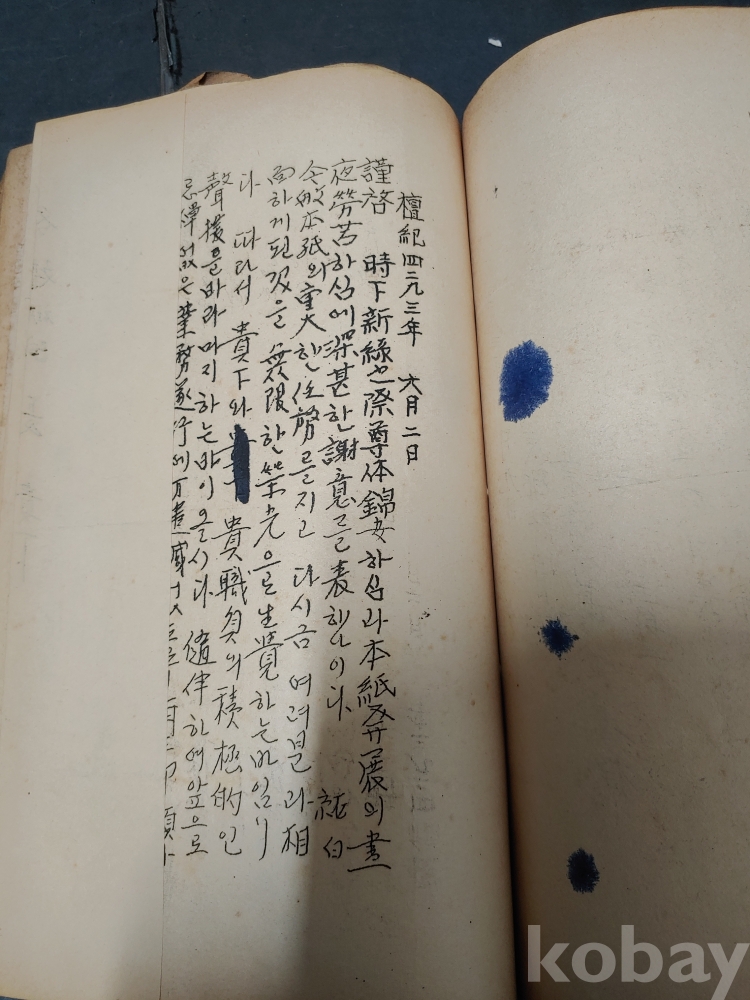 檀紀四二九三年 六月二日
謹啓 時下新綠之際尊体錦安하심과本紙발展의晝
夜勞苦하심에深甚한謝意를表합니다 純白
今般本紙의重大한任務를지고 다시금 여러분과相
面하게된것을 無限한榮光으로生覺하는바임니
다 따라서 貴下와 貴職員의積極的인
聲援을바라마지하는바이올시다 伴하여앞으로
忌憚없은業務遂行에万
kobay